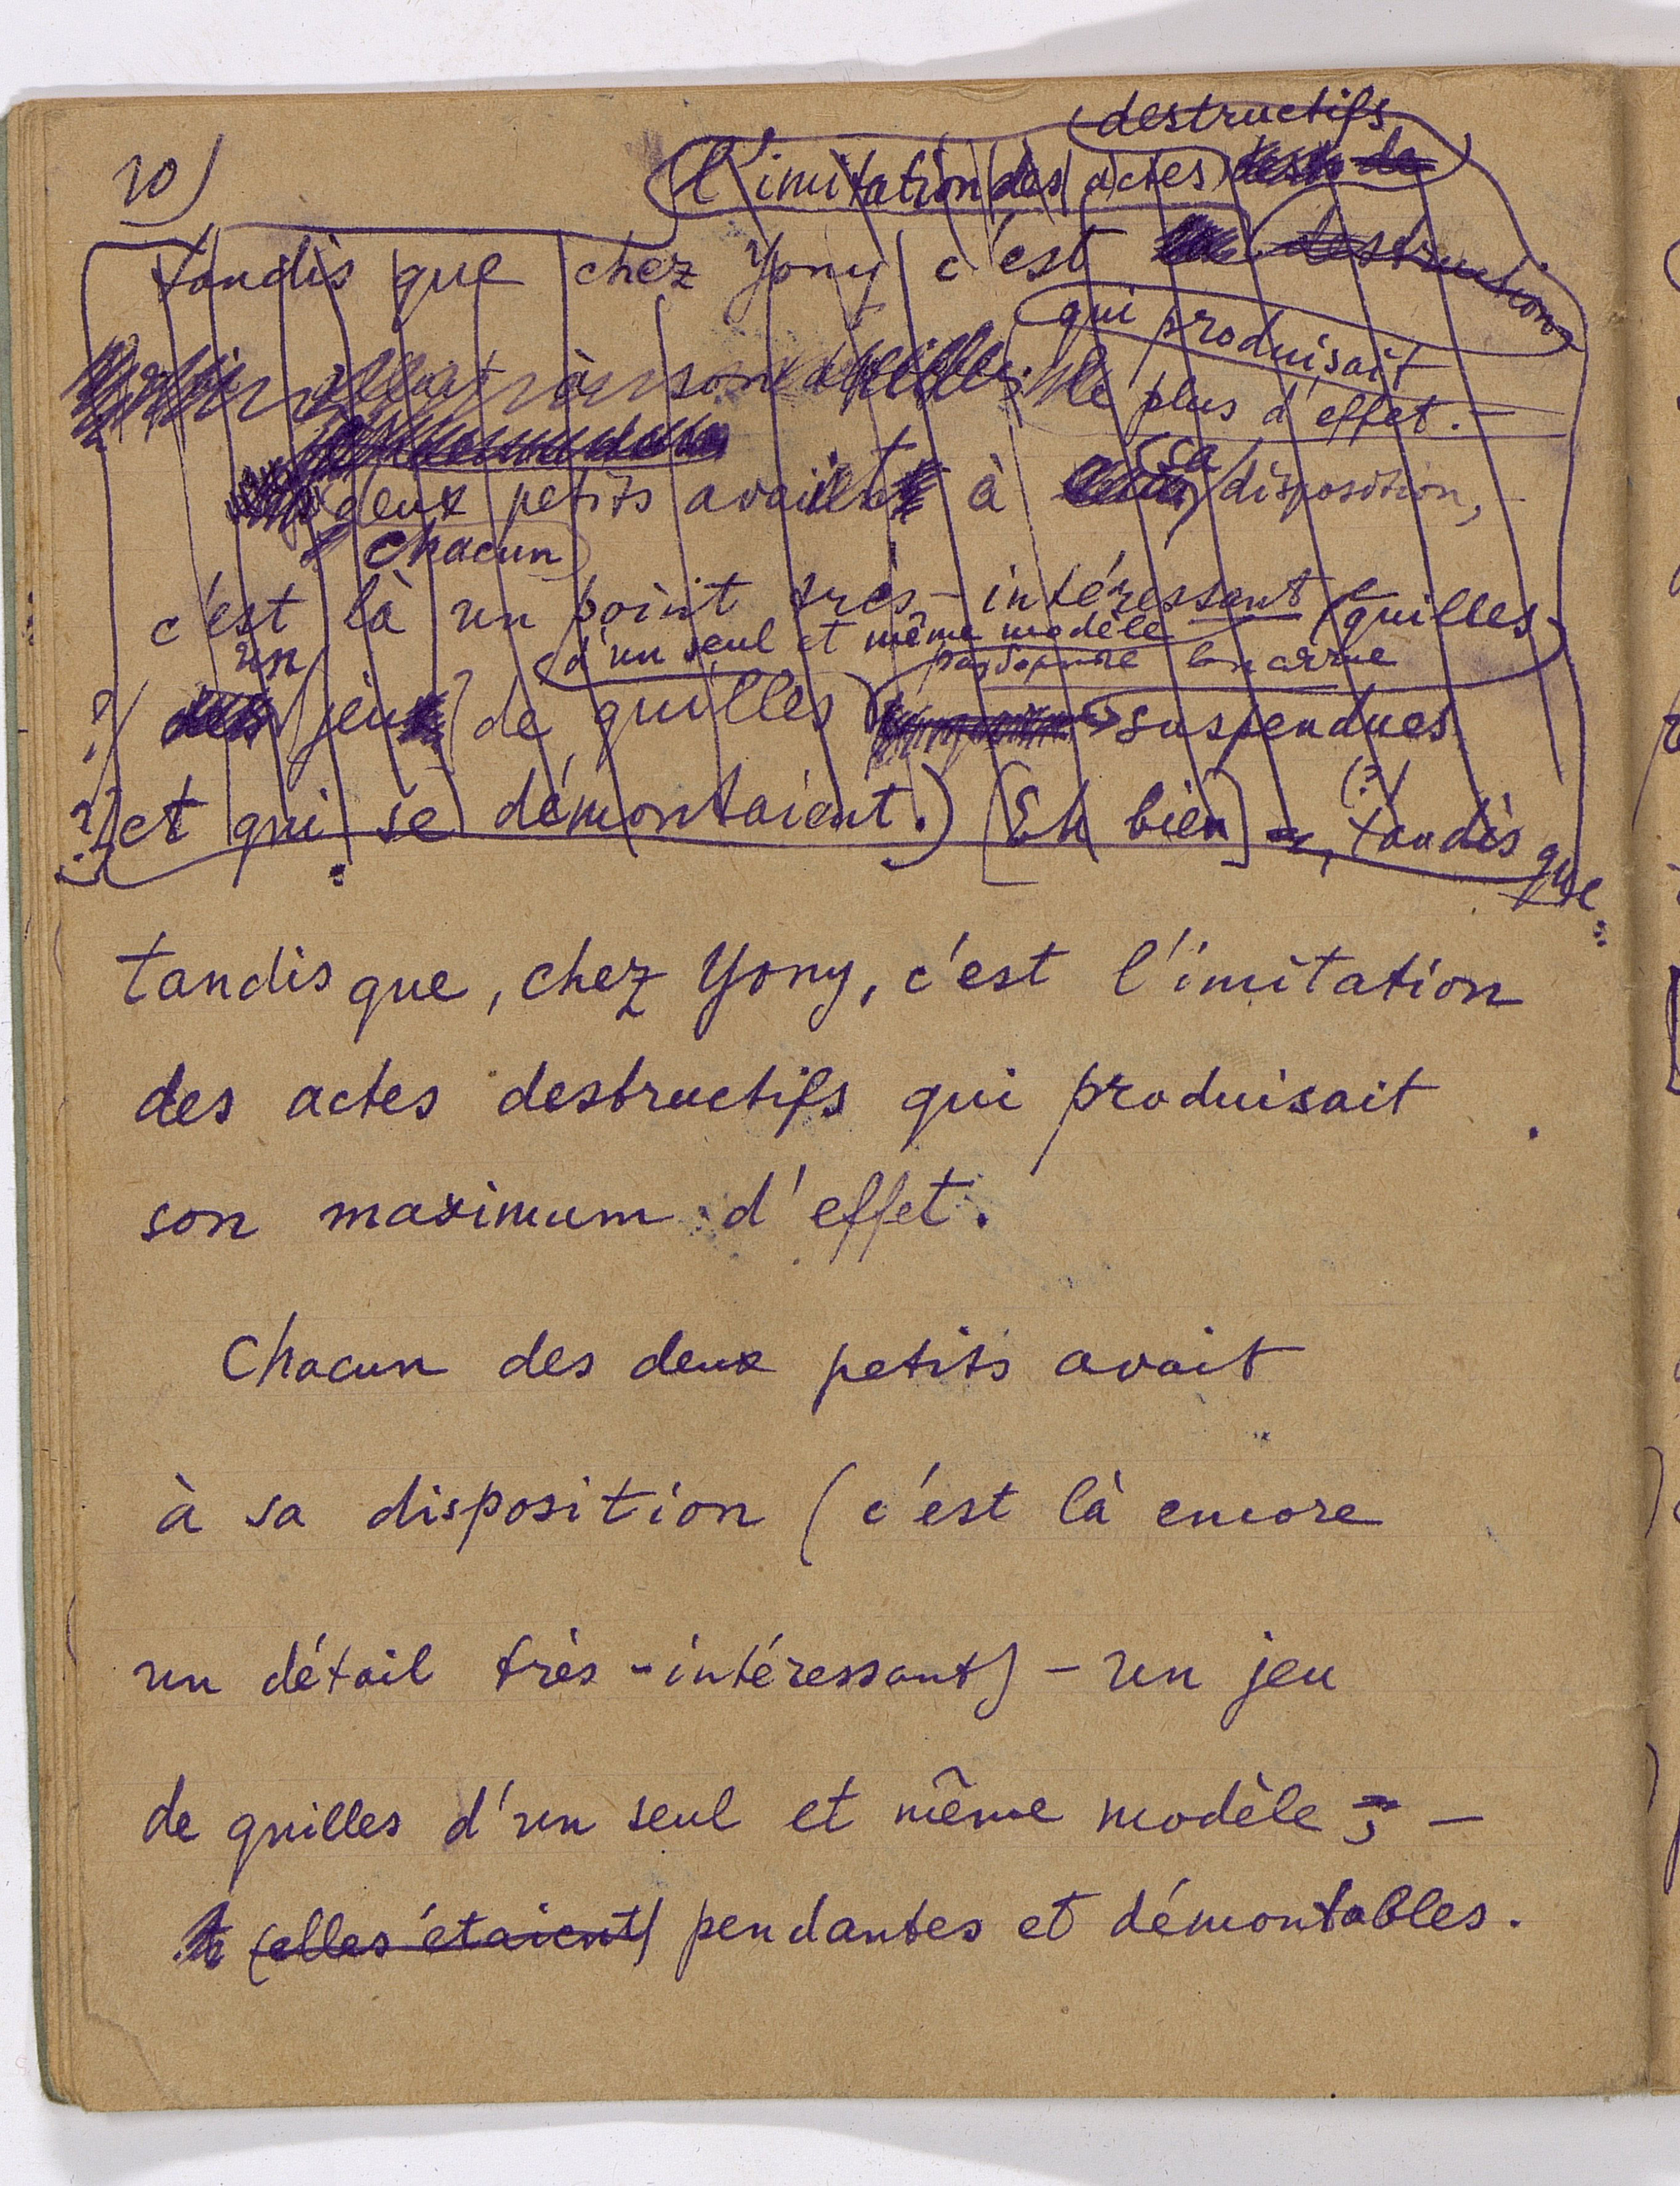 10)
destructifs
l'imitation des actes de
tandis que chez Yony c'est destruction
qui produisait
à son le plus d'effet. —
deux petits avait à sa disposition, —
chacun
c'est là un point très-intéressant (quilles
d'un seul et même modèle
un
?) des jeux de quilles suspendues
et qui se démontaient.) [Eh bien], (?) tandis que
tandis que, chez Yony, c'est l'imitation
des actes destructifs qui produisait
son maximum d'effet.
Chacun des deux petits avait
à sa disposition (c'est là encore
un détail très-intéressant) – un jeu
de quilles d'un seul et même modèle, –
(elles étaient) pendantes et démontables.